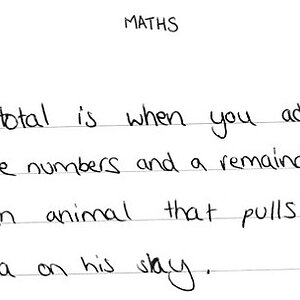 MATHS
total is when you ad
e numbers and a remaind
n animal that pulls
a on his slay.